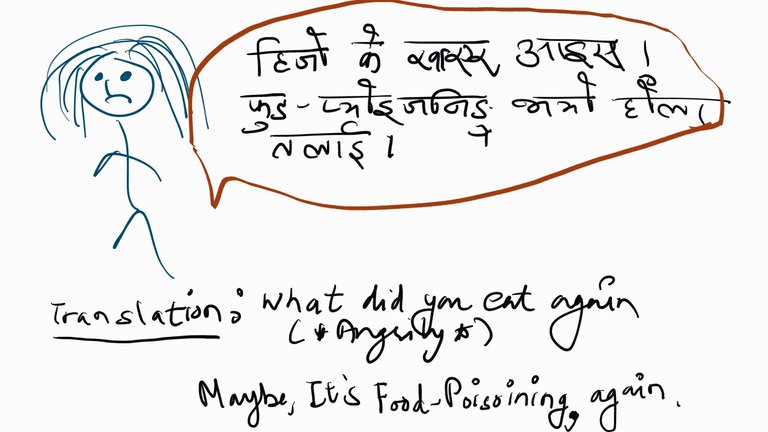 हिजो के खाइस् आइस ।
फुड - प्योइजनिङ्ग भयो होला ।
तलाई ।
Translation: What did you eat again
(*Angrily*)
Maybe, It's Food-Poisoining, again.